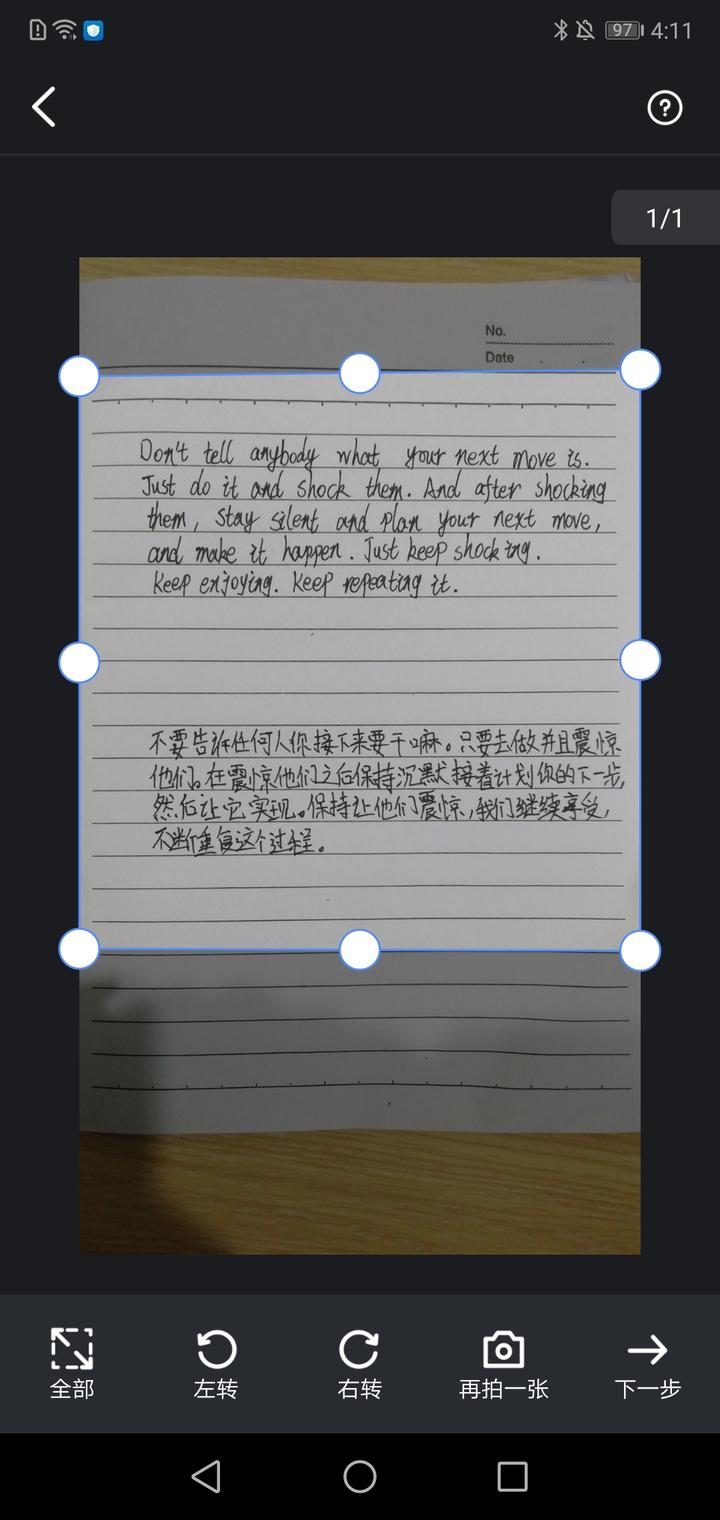 97 4:11
1/1
No.
Date
Don't tell anybody what your next move is.
Just do it and shock them. And after shocking
them, stay silent and plan your next move,
and make it happen. Just keep shocking.
Keep enjoying. Keep repeating it.
不要告诉任何人你接下来要干嘛。只要去做并且震惊
他们。在震惊他们之后保持沉默接着计划你的下一步,
然后让它实现。保持让他们震惊,我们继续享受,
不断重复这个过程。
全部 左转 右转 再拍一张 下一步